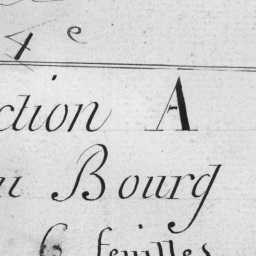 4 e
ction A
u Bourg
6 feuilles